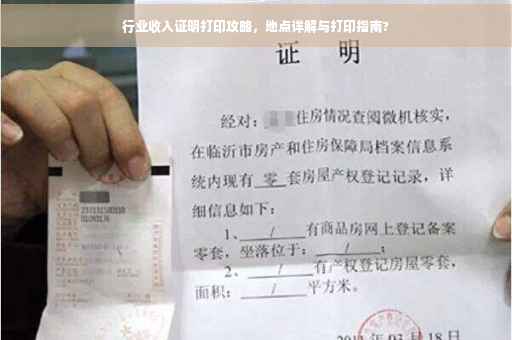 行业收入证明打印攻略，地点详解与打印指南?
证 明
经对：住房情况查阅微机核实，
在临沂市房产和住房保障局档案信息系
统内现有 零 套房屋产权登记记录，详
细信息如下：
1、 / 有商品房网上登记备案
零套，坐落位于： / ；
2、 / 有产权登记房屋零套，
面积： / 平方米。
月 18 日